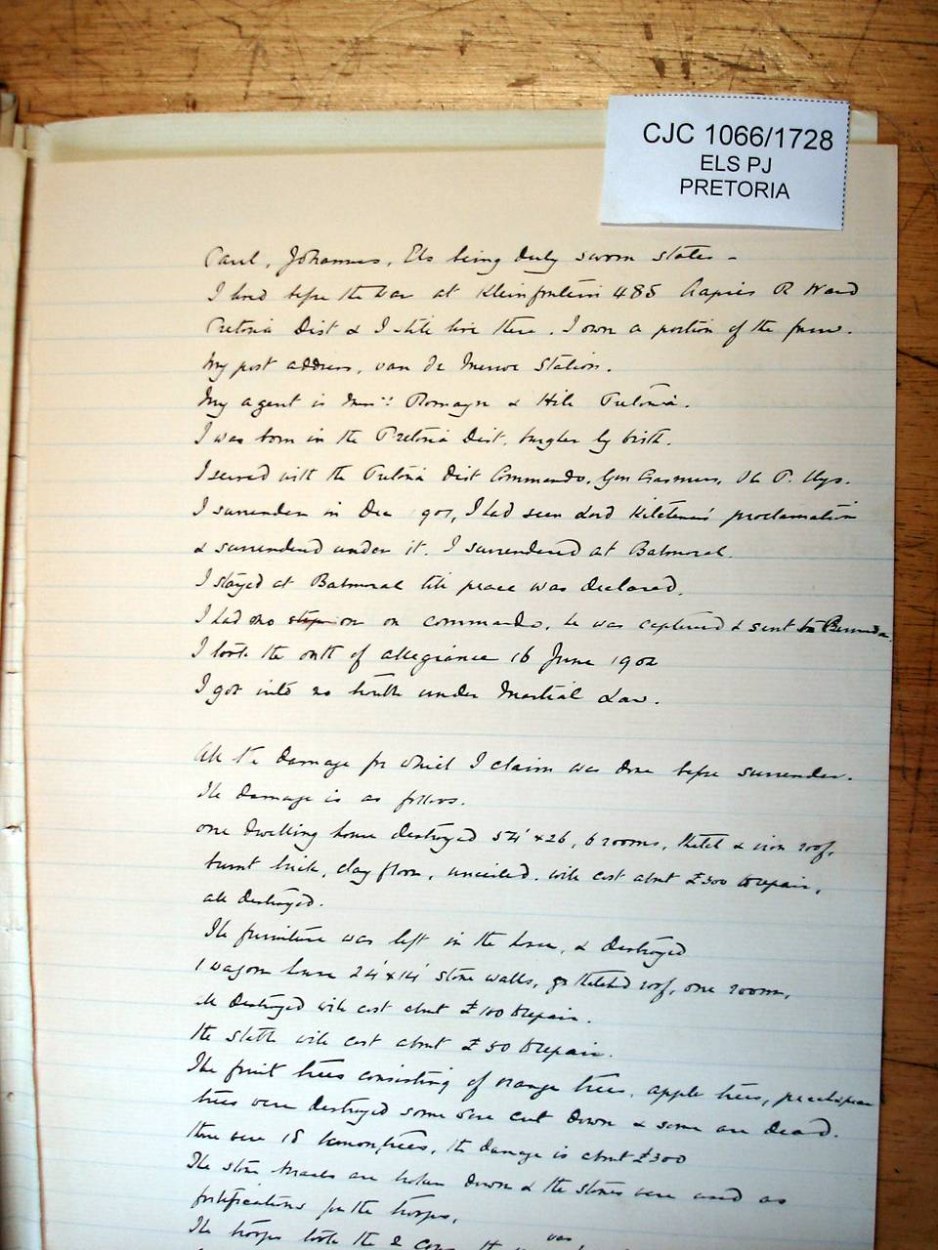 CJC 1066/1728
ELS PJ
PRETORIA
Paul, Johannes, Els being duly sworn states -
I lived before the War at Kleinfontein 485 Aapies R Ward
Pretoria Dist & I still live there. I own a portion of the farm.
My post address, van de Merwe Station.
My agent is Messrs Romayn & Hill Pretoria.
I was born in the Pretoria Dist, burgher by birth.
I served with the Pretoria Dist Commando, Gen Erasmus, P. Uys.
I surrendered in Dec 901, I had seen Lord Kitchener's proclamation
& surrendered under it. I surrendered at Balmoral.
I stayed at Balmoral till peace was declared.
I had one son on commando, he was captured & sent to Bermuda.
I took the oath of allegiance 16 June 1902
I got into no trouble under Martial Law.
All the damage for which I claim was done before surrender.
The damage is as follows.
one dwelling house destroyed 54' x 26, 6 rooms, thatch & iron roof,
burnt brick, clay floor, unceiled. will cost about £300 to repair,
all destroyed.
The furniture was left in the house, & destroyed
1 wagon house 24' x 14' stone walls, thatched roof, one room,
all destroyed will cost about £100 to repair.
The stable will cost about £50 to repair.
The fruit trees consisting of orange trees, apple trees, peach & pear
trees were destroyed some were cut down & some are dead.
there were 18 lemon trees, the damage is about £300
The stone kraals are broken down & the stones were used as
fortifications for the troops,
The troops took the 2 was